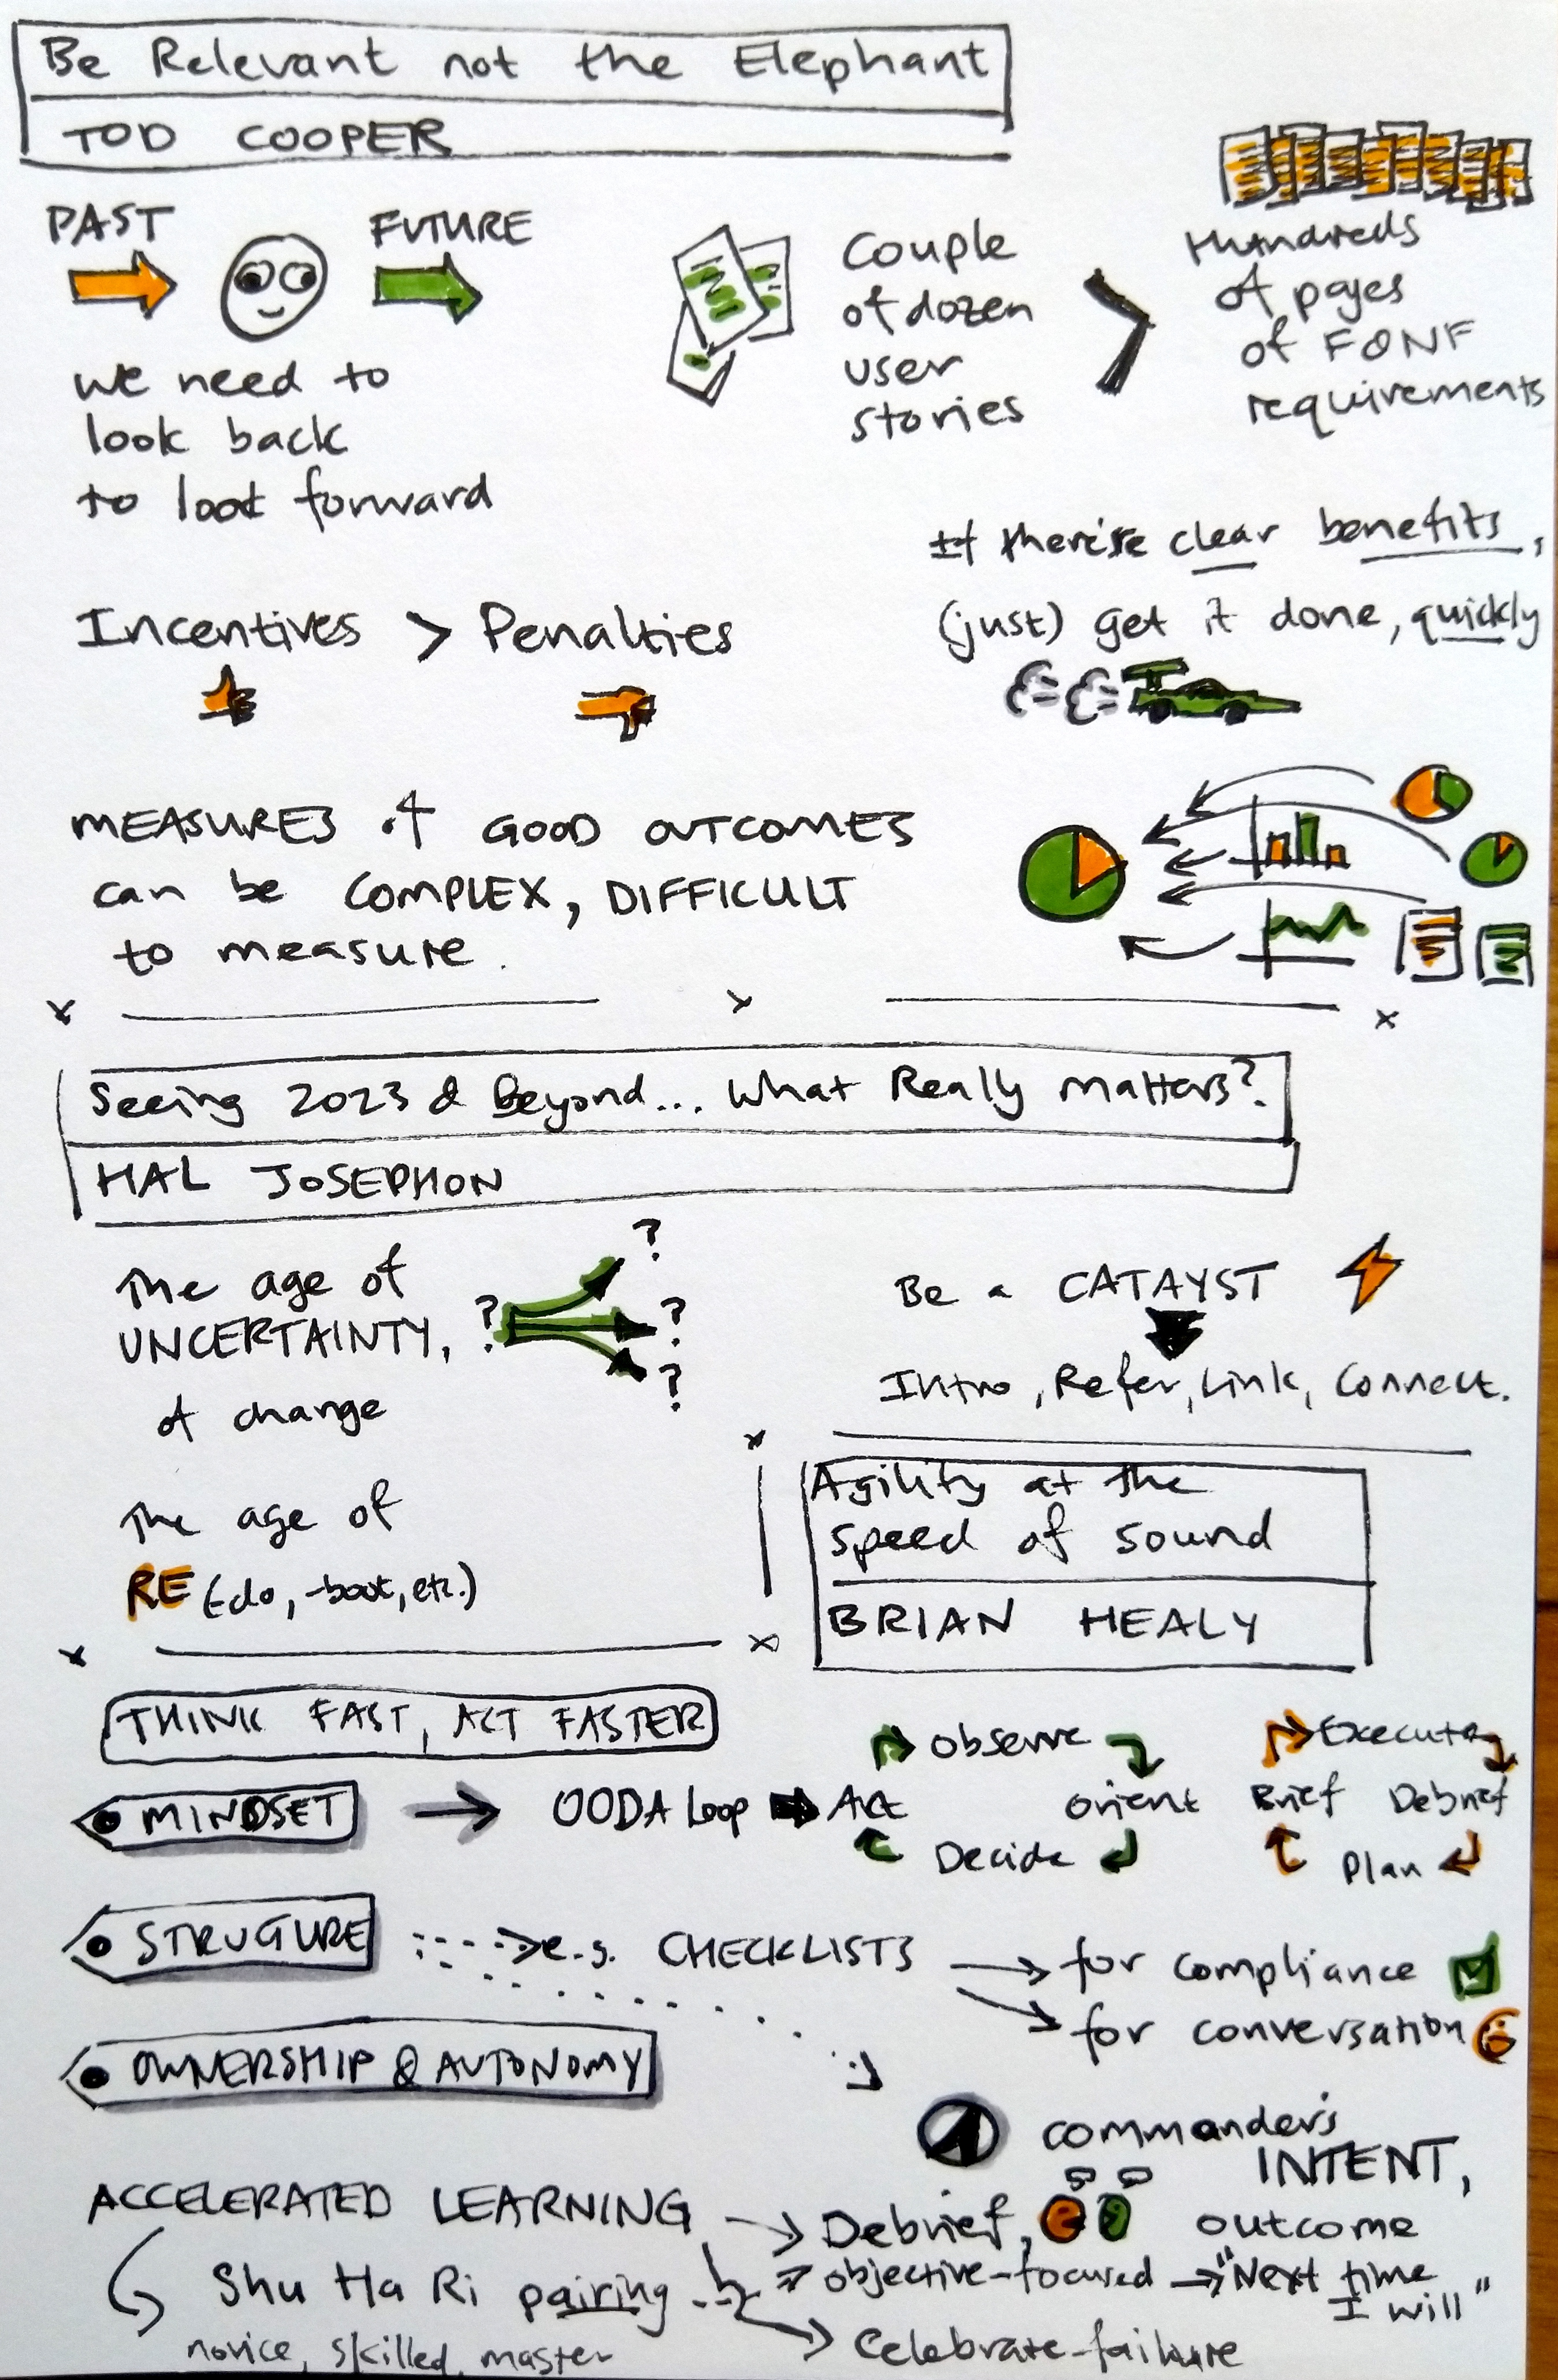 Be Relevant not the Elephant
TOD COOPER
PAST
FUTURE
we need to
look back
to look forward
Couple
of dozen
user
stories
>
Hundreds
of pages
of FONF
requirements
If there's clear benefits,
(just) get it done, quickly
Incentives > Penalties
MEASURES of GOOD OUTCOMES
can be COMPLEX, DIFFICULT
to measure.
Seeing 2023 & Beyond... What Really matters?
HAL JOSEPHON
The age of
UNCERTAINTY,
of change
?
?
?
?
Be a CATAYST
Intro, Refer, Link, Connect.
The age of
RE (-do, -boot, etc.)
Agility at the
speed of sound
BRIAN HEALY
THINK FAST, ACT FASTER
MINDSET
OODA Loop
Observe
Orient
Decide
Act
Execute
Debrief
Plan
Brief
STRUCTURE
e.g. CHECKLISTS
for compliance
for conversation
OWNERSHIP & AUTONOMY
commander's
INTENT,
outcome
ACCELERATED LEARNING
Debrief,
objective-focused
"Next time
I will"
Shu Ha Ri pairing
novice, skilled, master
Celebrate failure